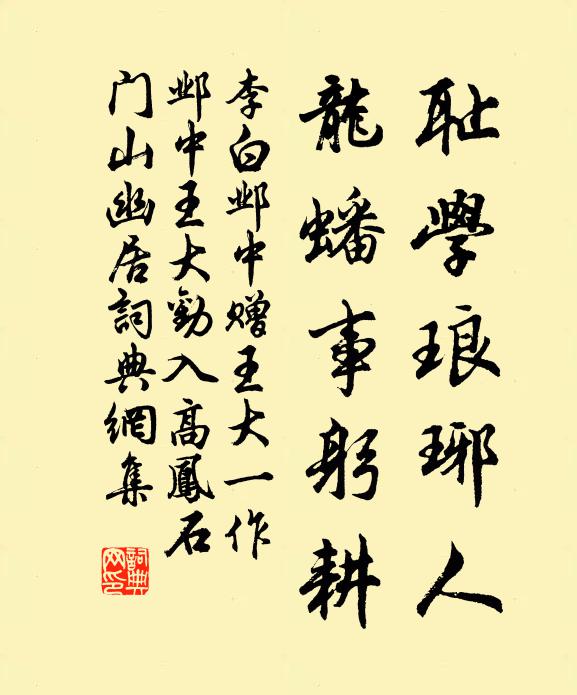 耻學琅琊人
龍蟠事躬耕
李白邺中赠王大一作
邺中王大勸入高鳳石
门山幽居詞典網集
詞典网印